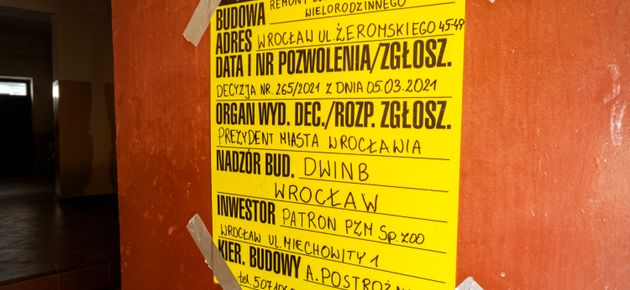 BUDOWA REMONT
WIELORODZINNEGO
ADRES WROCŁAW UL. ŻEROMSKIEGO 45-49
DATA I NR POZWOLENIA/ZGŁOSZ.
DECYZJA NR. 265/2021 Z DNIA 05.03.2021
ORGAN WYD. DEC./ROZP. ZGŁOSZ.
PREZYDENT MIASTA WROCŁAWIA
NADZÓR BUD. DWINB
WROCŁAW
INWESTOR PATRON PZM Sp. ZOO
WROCŁAW UL. MIECHOWITY 1
KIER. BUDOWY A. POSTROŻN
tel. 5071